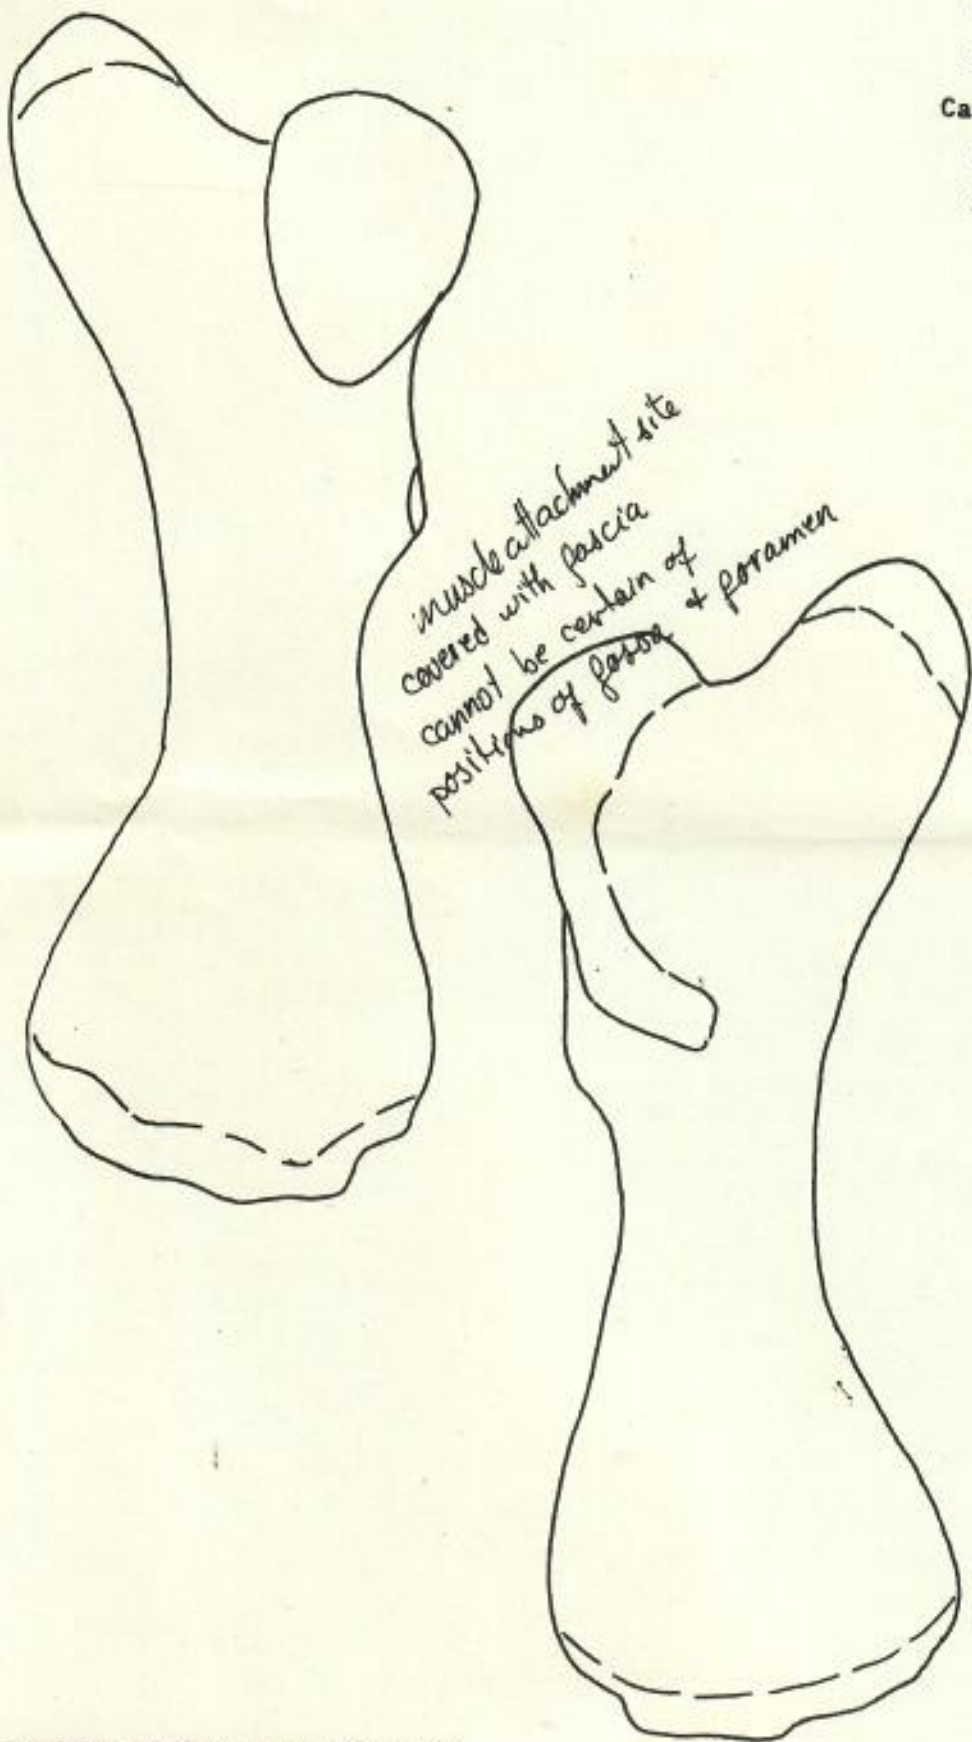 Ca
muscle attachment site
covered with fascia
cannot be certain of
positions of fossa & foramen